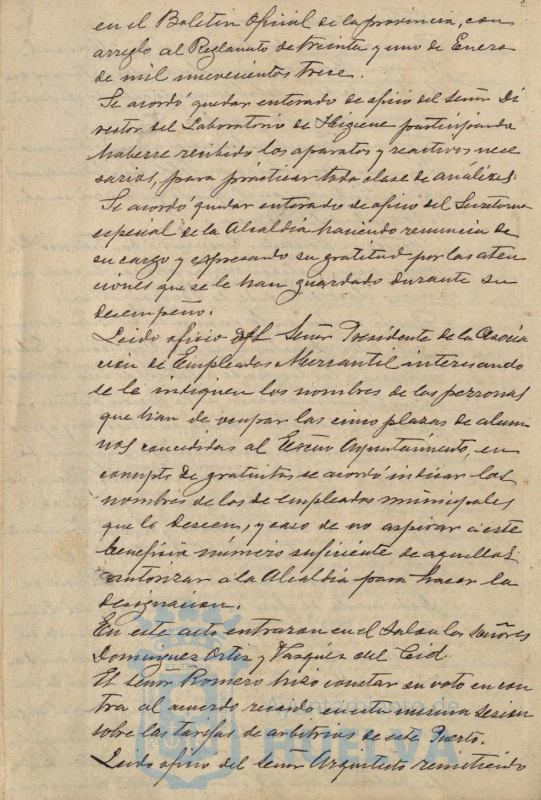 en el Boletin Oficial de la provincia, con
arreglo al Reglamto de treinta y uno de Enero
de mil nuevecientos trece.
Se acordó quedar enterado de oficio del señor Di
rector del Laboratorio de Higiene participando
haberse recibido los aparatos y reactivos nece
sarios, para prácticar toda clase de análizes.
Se acordó quedar enterado de oficio del Secretario
especial de la Alcaldia haciendo renuncia de
su cargo y expresando su gratitud por las aten
ciones que se le han guardado durante su
desempeño.
Leido oficio del Señor Presidente de la Asocia
cion de Empleados Mercantil interesando
se le indiquen los nombres de las personas
que han de ocupar las cinco plazas de alum
nos concedidas al Excmo Ayuntamiento, en
concepto de gratuitas se acordó indicar los
nombres de los de empleados municipales
que lo deseen, y caso de no aspirar a este
beneficio número suficiente de aquellos
autorizar a la Alcaldia para hacer la
designacion.
En este acto entraron en el Salon los señores
Dominguez Ortiz y Vazquez del Cid.
El señor Romero hizo constar su voto en con
tra al acuerdo recaido en esta misma sesion
sobre las tarifas de arbitrios de este Puerto.
Leido oficio del señor Arquitecto remitiendo
Ayuntamiento de
HUELVA